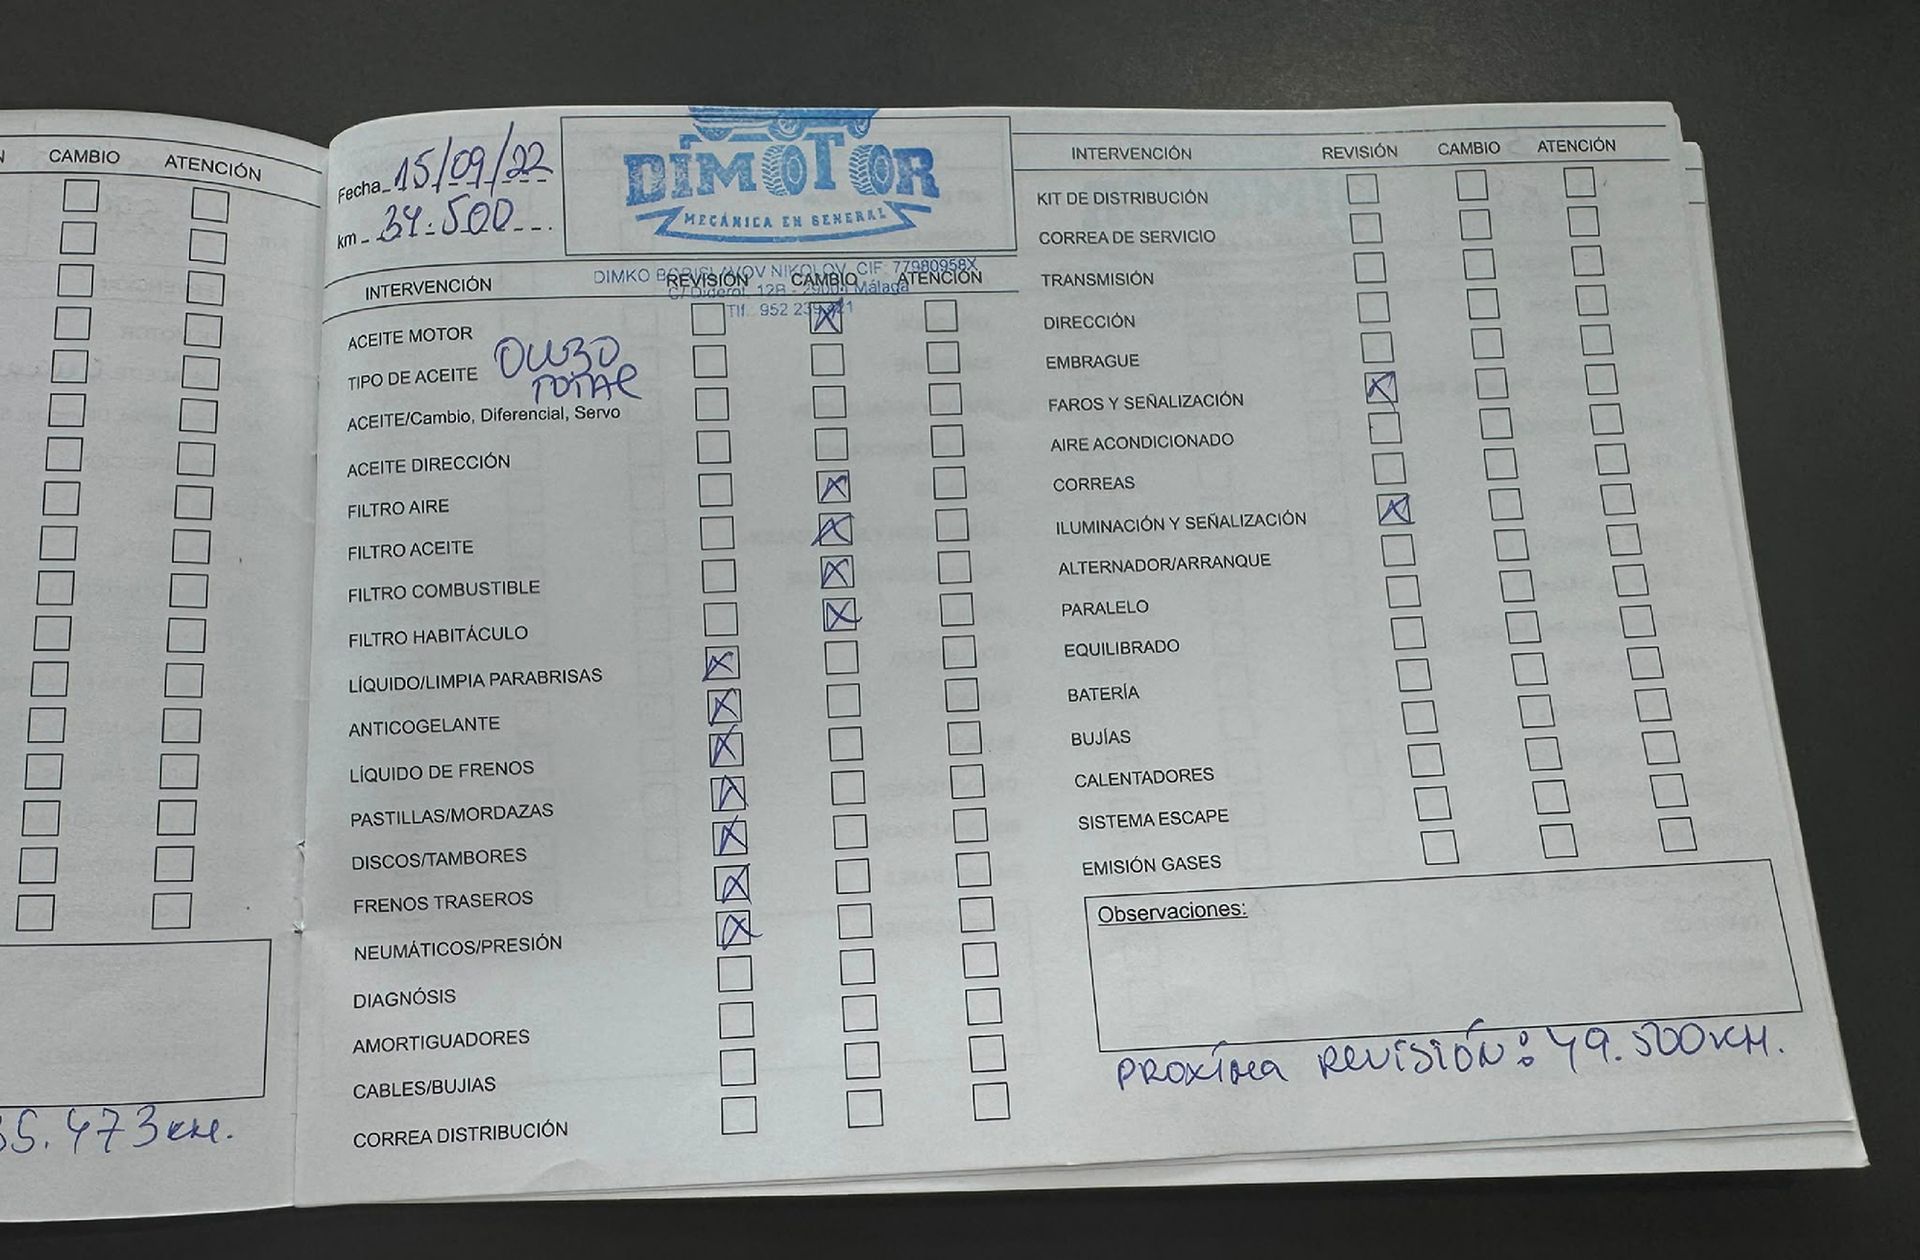 CAMBIO ATENCIÓN
35.473 KM.
Fecha 15/09/22
km 34.500
DIMOTOR
MECÁNICA EN GENERAL
DIMKO BORISLAVOV NIKOLOV, CIF: 77980958X
C/ Diderot, 12B - 29004 Málaga
Tlf.: 952 239
INTERVENCIÓN REVISIÓN CAMBIO ATENCIÓN
ACEITE MOTOR
TIPO DE ACEITE 0W30
TOTAL
ACEITE/Cambio, Diferencial, Servo
ACEITE DIRECCIÓN
FILTRO AIRE
FILTRO ACEITE
FILTRO COMBUSTIBLE
FILTRO HABITÁCULO
LÍQUIDO/LIMPIA PARABRISAS
ANTICOGELANTE
LÍQUIDO DE FRENOS
PASTILLAS/MORDAZAS
DISCOS/TAMBORES
FRENOS TRASEROS
NEUMÁTICOS/PRESIÓN
DIAGNÓSIS
AMORTIGUADORES
CABLES/BUJIAS
CORREA DISTRIBUCIÓN
INTERVENCIÓN REVISIÓN CAMBIO ATENCIÓN
KIT DE DISTRIBUCIÓN
CORREA DE SERVICIO
TRANSMISIÓN
DIRECCIÓN
EMBRAGUE
FAROS Y SEÑALIZACIÓN
AIRE ACONDICIONADO
CORREAS
ILUMINACIÓN Y SEÑALIZACIÓN
ALTERNADOR/ARRANQUE
PARALELO
EQUILIBRADO
BATERÍA
BUJÍAS
CALENTADORES
SISTEMA ESCAPE
EMISIÓN GASES
Observaciones:
PROXÍMA REVISIÓN: 49.500 KM.